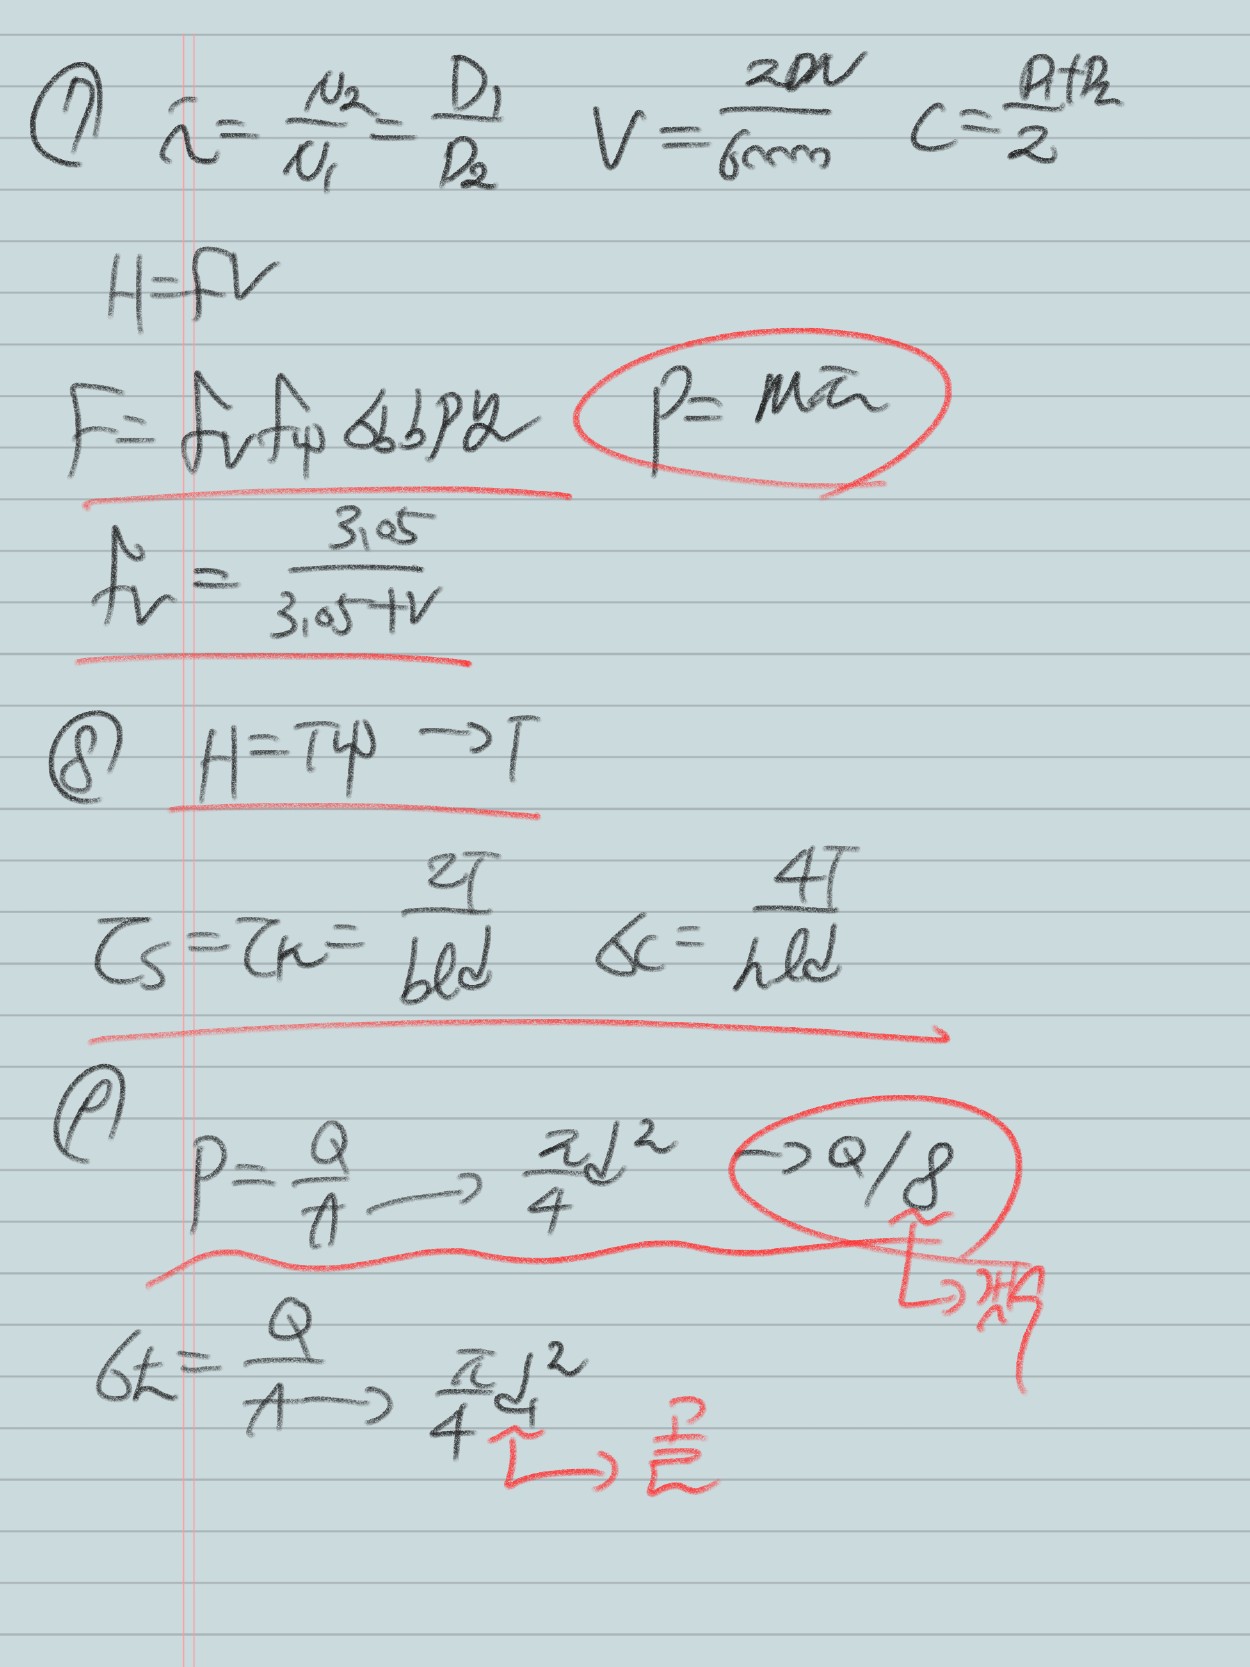 ⑦ i = N₂/N₁ = D₁/D₂ V = πDN/60000 C = (D₁+D₂)/2
H = FV
F = fv fw σb b p y P = mπ
fv = 3.05/(3.05+V)
⑧ H = Tω → T
τs = τk = 2T/bld σc = 4T/hld
⑨ P = Q/A → π/4 d² → Q/8
σt = Q/A → π/4 d₁²